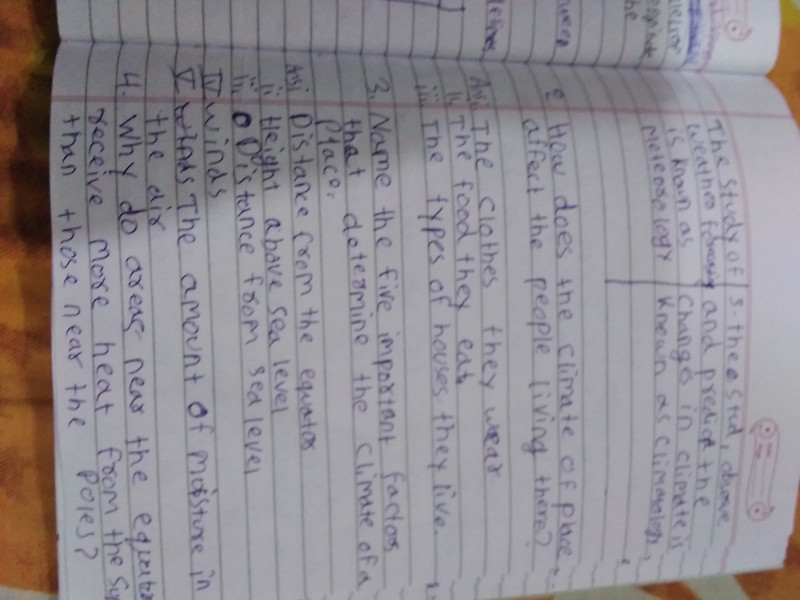 The study of
weather
is known as
meteorology
3. the stud, observe
and predict the
changes in climate is
known as climatology
2 How does the climate of place
affect the people living there?
Ans i. The clothes they wear
ii. The food they eat
iii. The types of houses they live.
3. Name the five important factors
that determine the climate of a
place.
Ans i Distance from the equator
ii Height above sea level
iii Distance from sea level
IV winds
V The amount of moisture in
the air
4. Why do areas near the equator
receive more heat from the
than those near the poles?